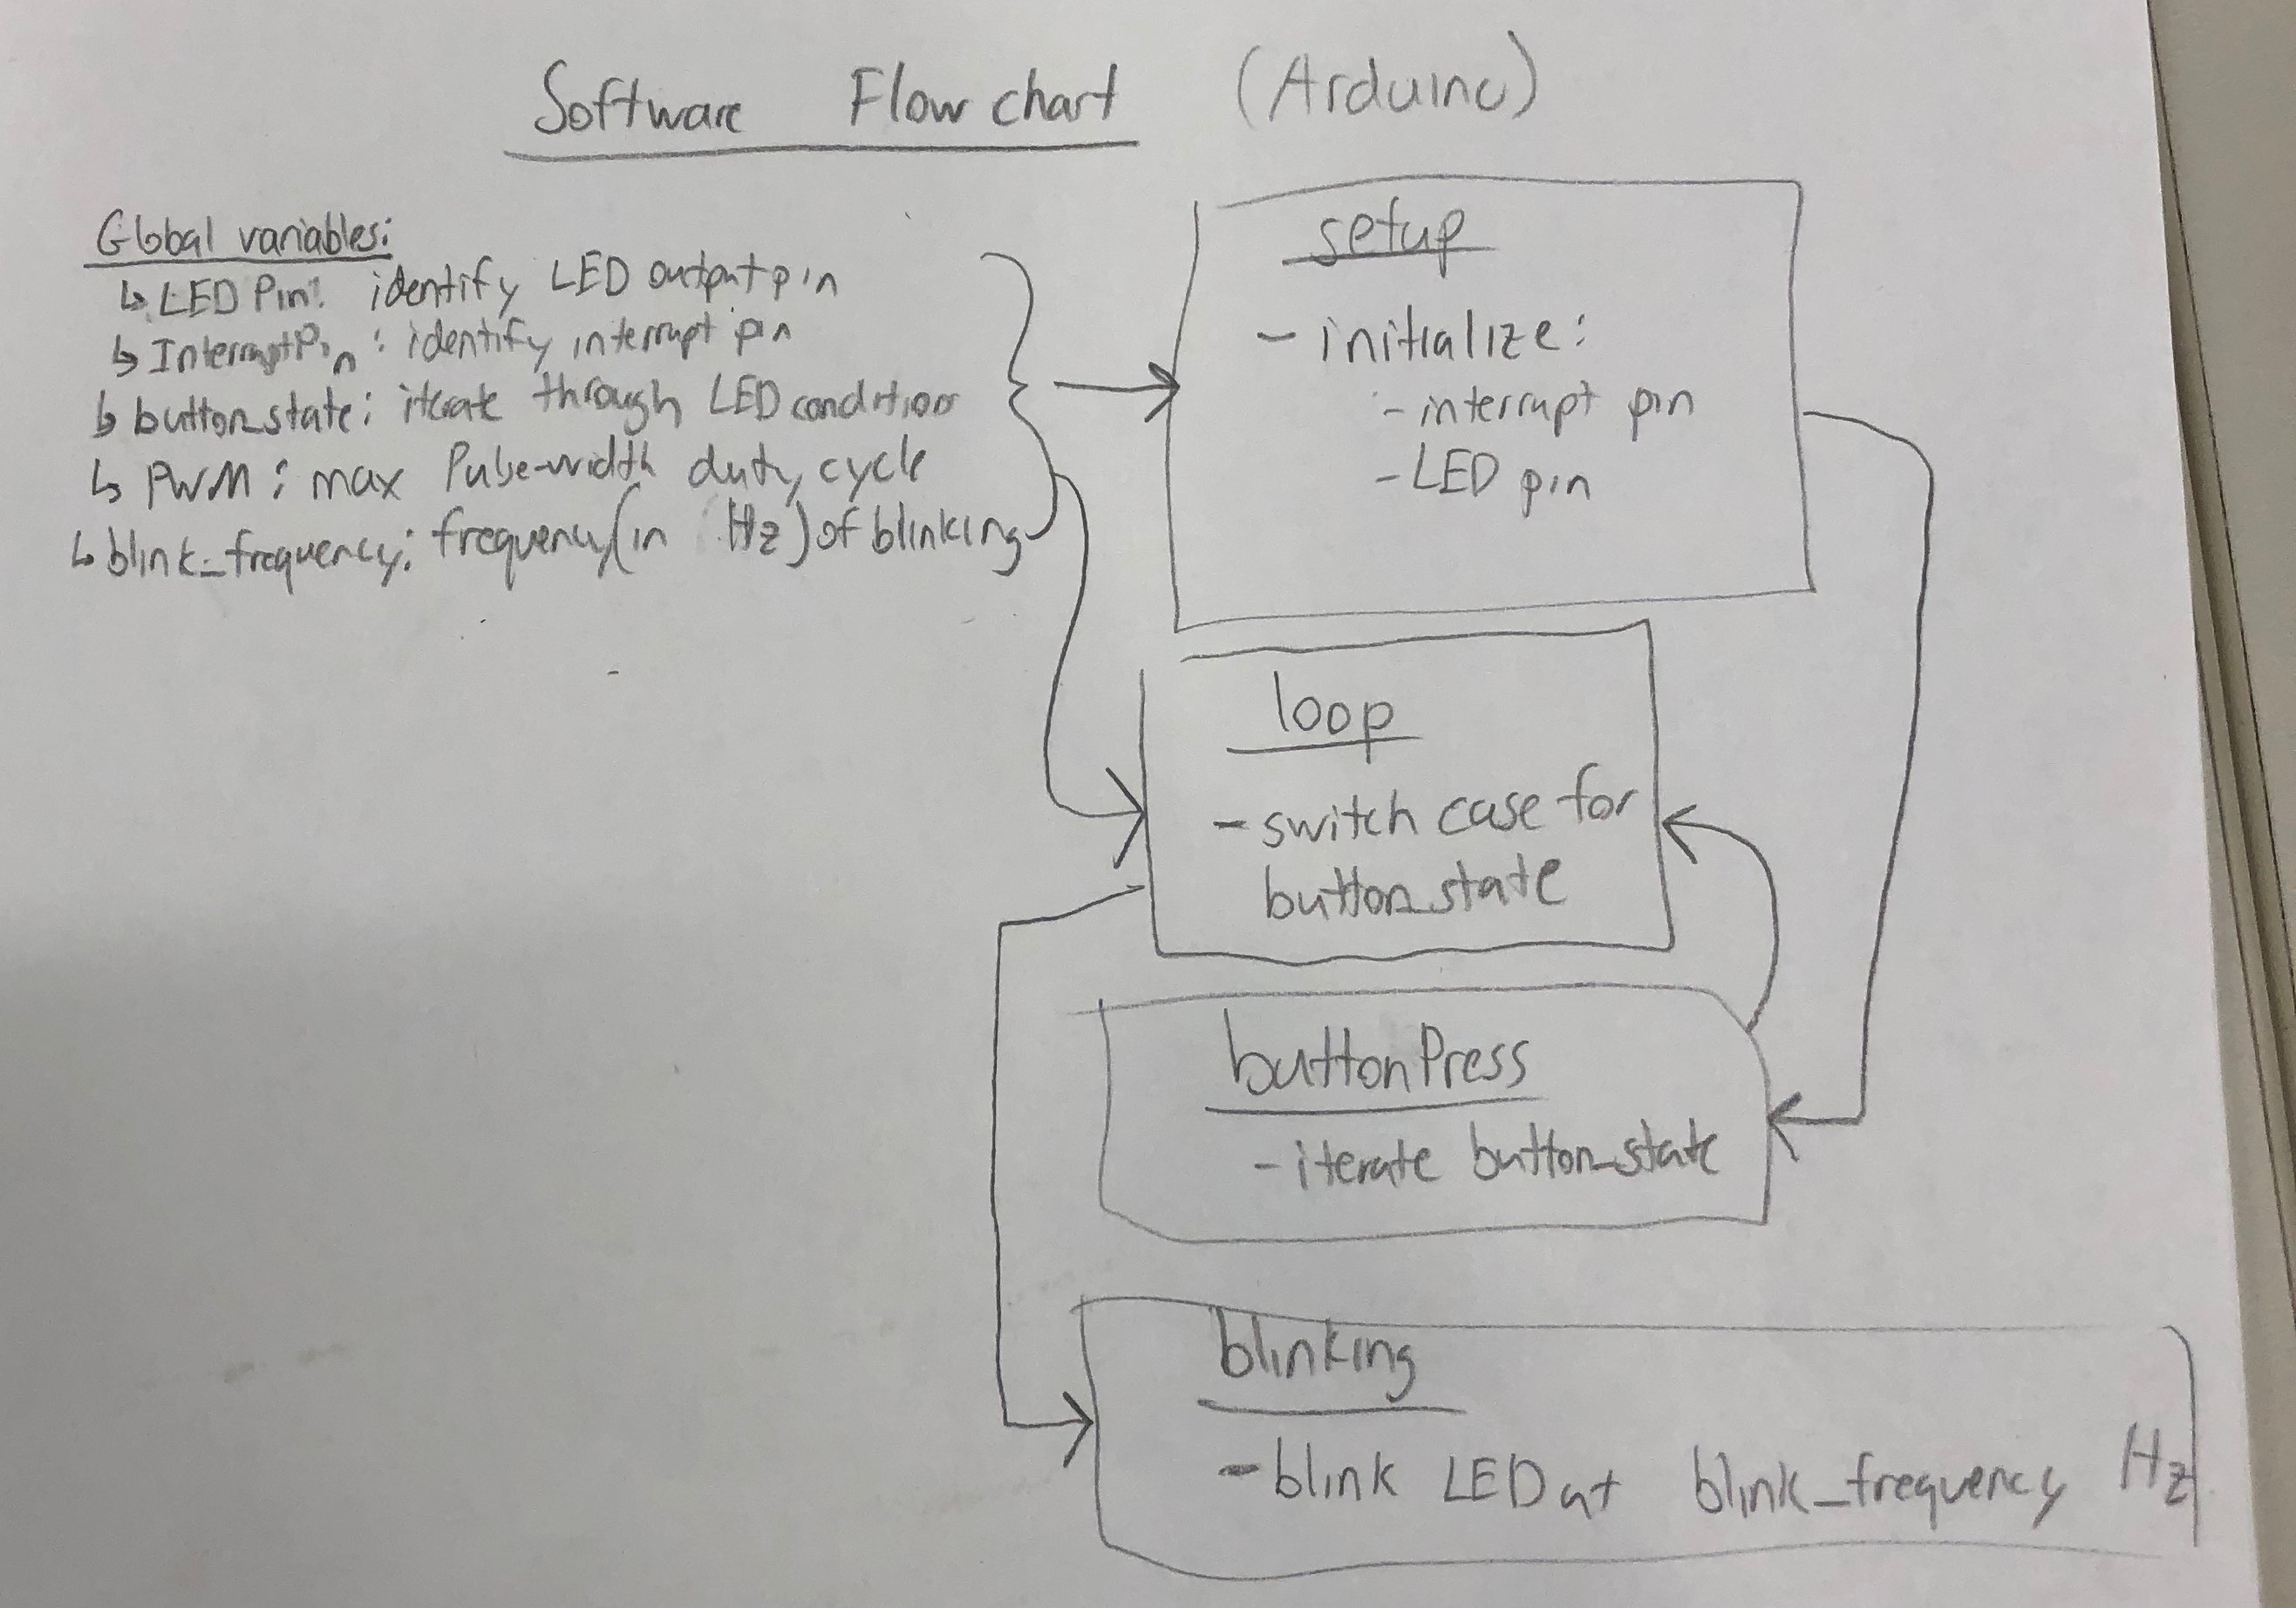 Software Flow chart (Arduino)
Global variables:
↳ LED Pin: identify LED output pin
↳ InterruptPin: identify interrupt pin
↳ button_state: iterate through LED condition
↳ PWM: max Pulse-width duty cycle
↳ blink_frequency: frequency (in Hz) of blinking
setup
- initialize:
- interrupt pin
- LED pin
loop
- switch case for
button_state
buttonPress
- iterate button_state
blinking
- blink LED at blink_frequency Hz